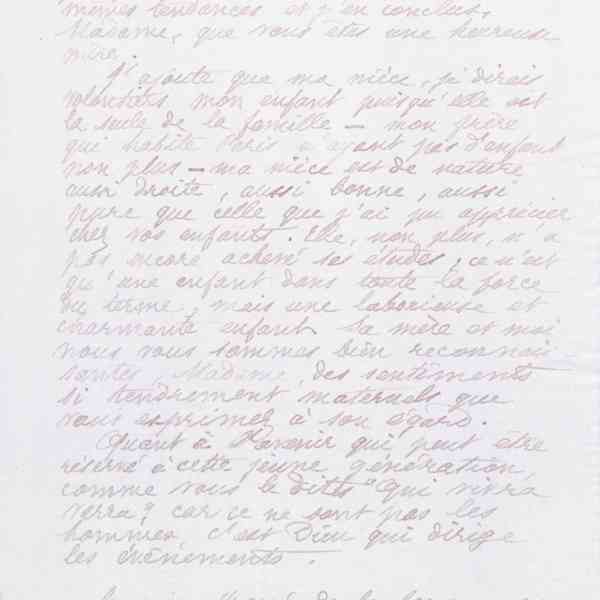 mêmes tendances et j'en conclus,
Madame, que vous êtes une heureuse
mère.
J'ajoute que ma nièce, je dirais
volontiers mon enfant puisqu'elle est
la seule de la famille — mon frère
qui habite Paris n'ayant pas d'enfant
non plus — ma nièce est de nature
aussi droite, aussi bonne, aussi
pure que celle que j'ai pu apprécier
chez vos enfants. Elle, non plus, n'a
pas encore achevé ses études; ce n'est
qu'une enfant dans toute la force
du terme, mais une laborieuse et
charmante enfant. Sa mère et moi
nous vous sommes bien reconnais-
santes, Madame, des sentiments
si tendrement maternels que
vous exprimez à son égard.
Quant à l'avenir qui peut être
réservé à cette jeune génération,
comme vous le dites "qui vivra
verra" car ce ne sont pas les
hommes, c'est Dieu qui dirige
les événements.